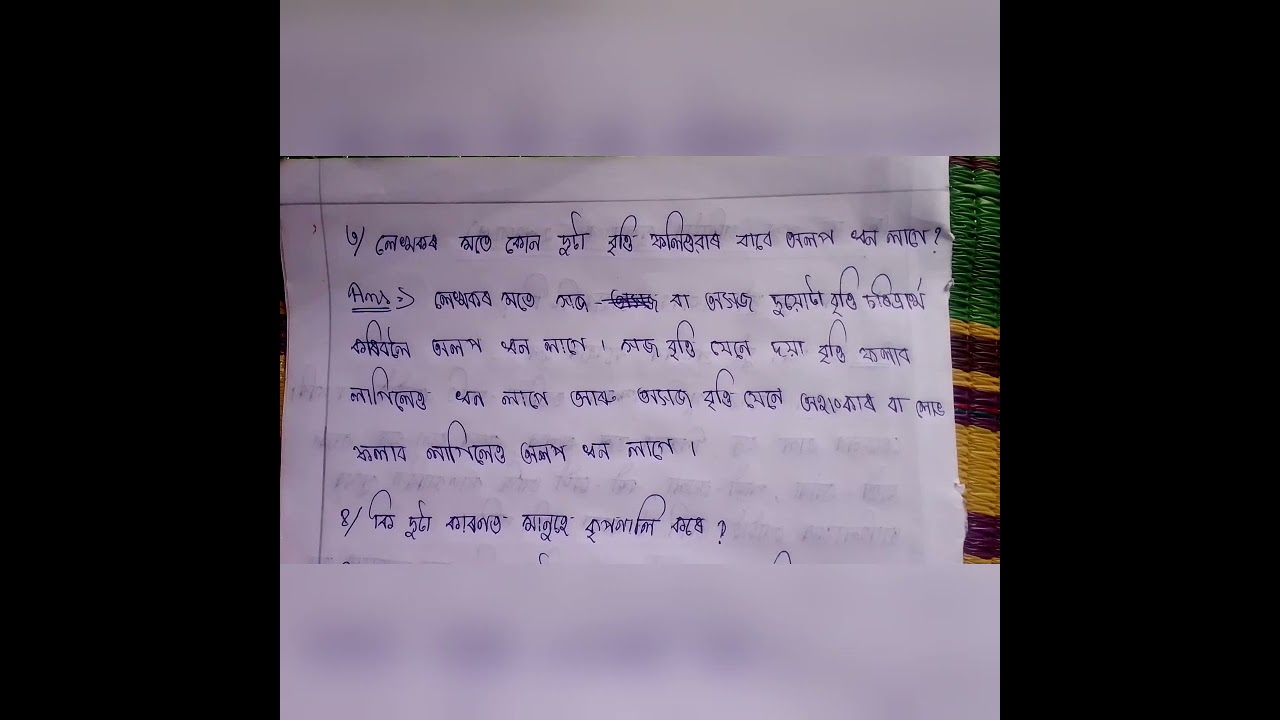 ৩/ লেখকৰ মতে কোন দুটা বৃত্তি ফলিওৱাৰ বাবে অলপ ধন লাগে?
Ans :-> লেখকৰ মতে সজ - বা অসাজ দুয়োটা বৃত্তি চৰিত্ৰাৰ্থ
কৰিবলৈ অলপ ধন লাগে । সজ বৃত্তি যেনে দয়া বৃত্তি ফলাব
লাগিলেও ধন লাগে আৰু অসাজ বৃত্তি যেনে অহংকাৰ বা লোভ
ফলাব লাগিলেও অলপ ধন লাগে ।
৪/ কি দুটা কাৰণত মানুহে কৃপনালি কৰে ?